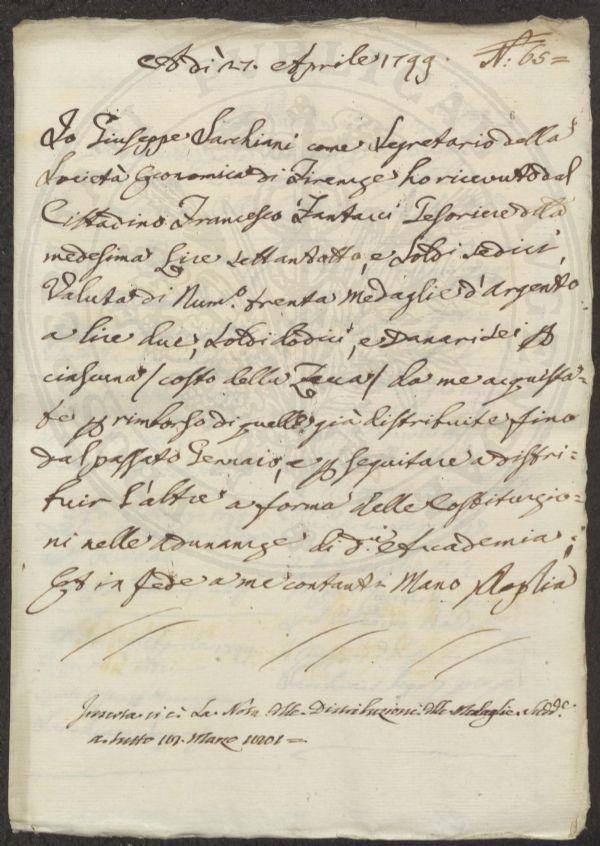 Adì 27. Aprile 1799.
N: 65=
Io Giuseppe Sarchiani come Segretario della
Società Economica di Firenze ho ricevuto dal
Cittadino Francesco Fantacci Tesoriere della
medesima Lire settantotto, e Soldi sedici,
Valuta di Num.o trenta Medaglie d'Argento
a lire due, Soldi dodici, e Danari Sei p
ciascuna / costo della Zecca / da me acquista-
te p rimborso di quelle già distribuite fino
dal passato Gennaio, e p seguitare a distri-
buir l'altre a forma delle Costituzio-
ni nelle adunanze di d.a Accademia;
Et in fede a me contanti Mano Propria
La Nota delle Distribuzioni delle Medaglie
a tutto Marzo 1801=